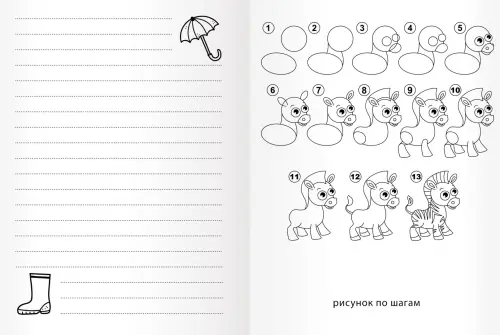 1 2 3 4 5
6 7 8 9 10
11 12 13
рисунок по шагам